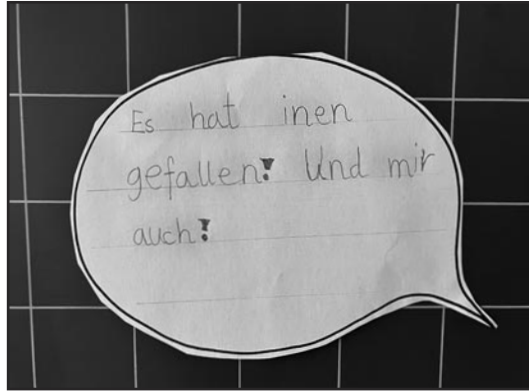 Es hat inen
gefallen! Und mir
auch!